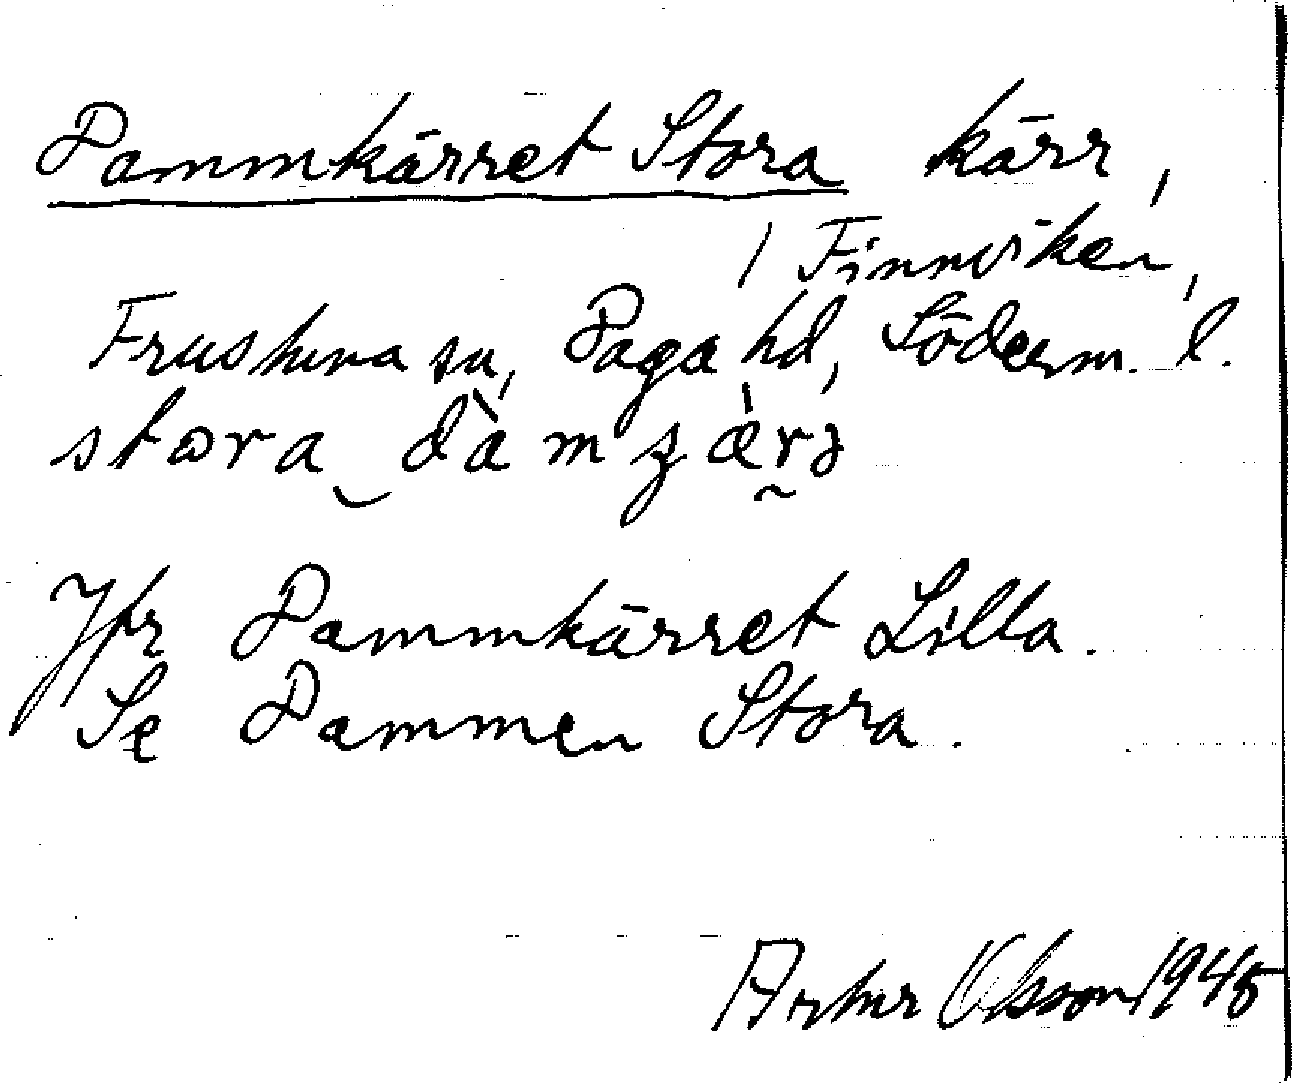 Dammkärret Stora kärr,
/ Finnviken,
Frustuna sn, Daga hd, Söderm. l.
stora dàmʒæ̀rə
Jfr Dammkärret Lilla.
Se Dammen Stora.
Artur Olsson 1945